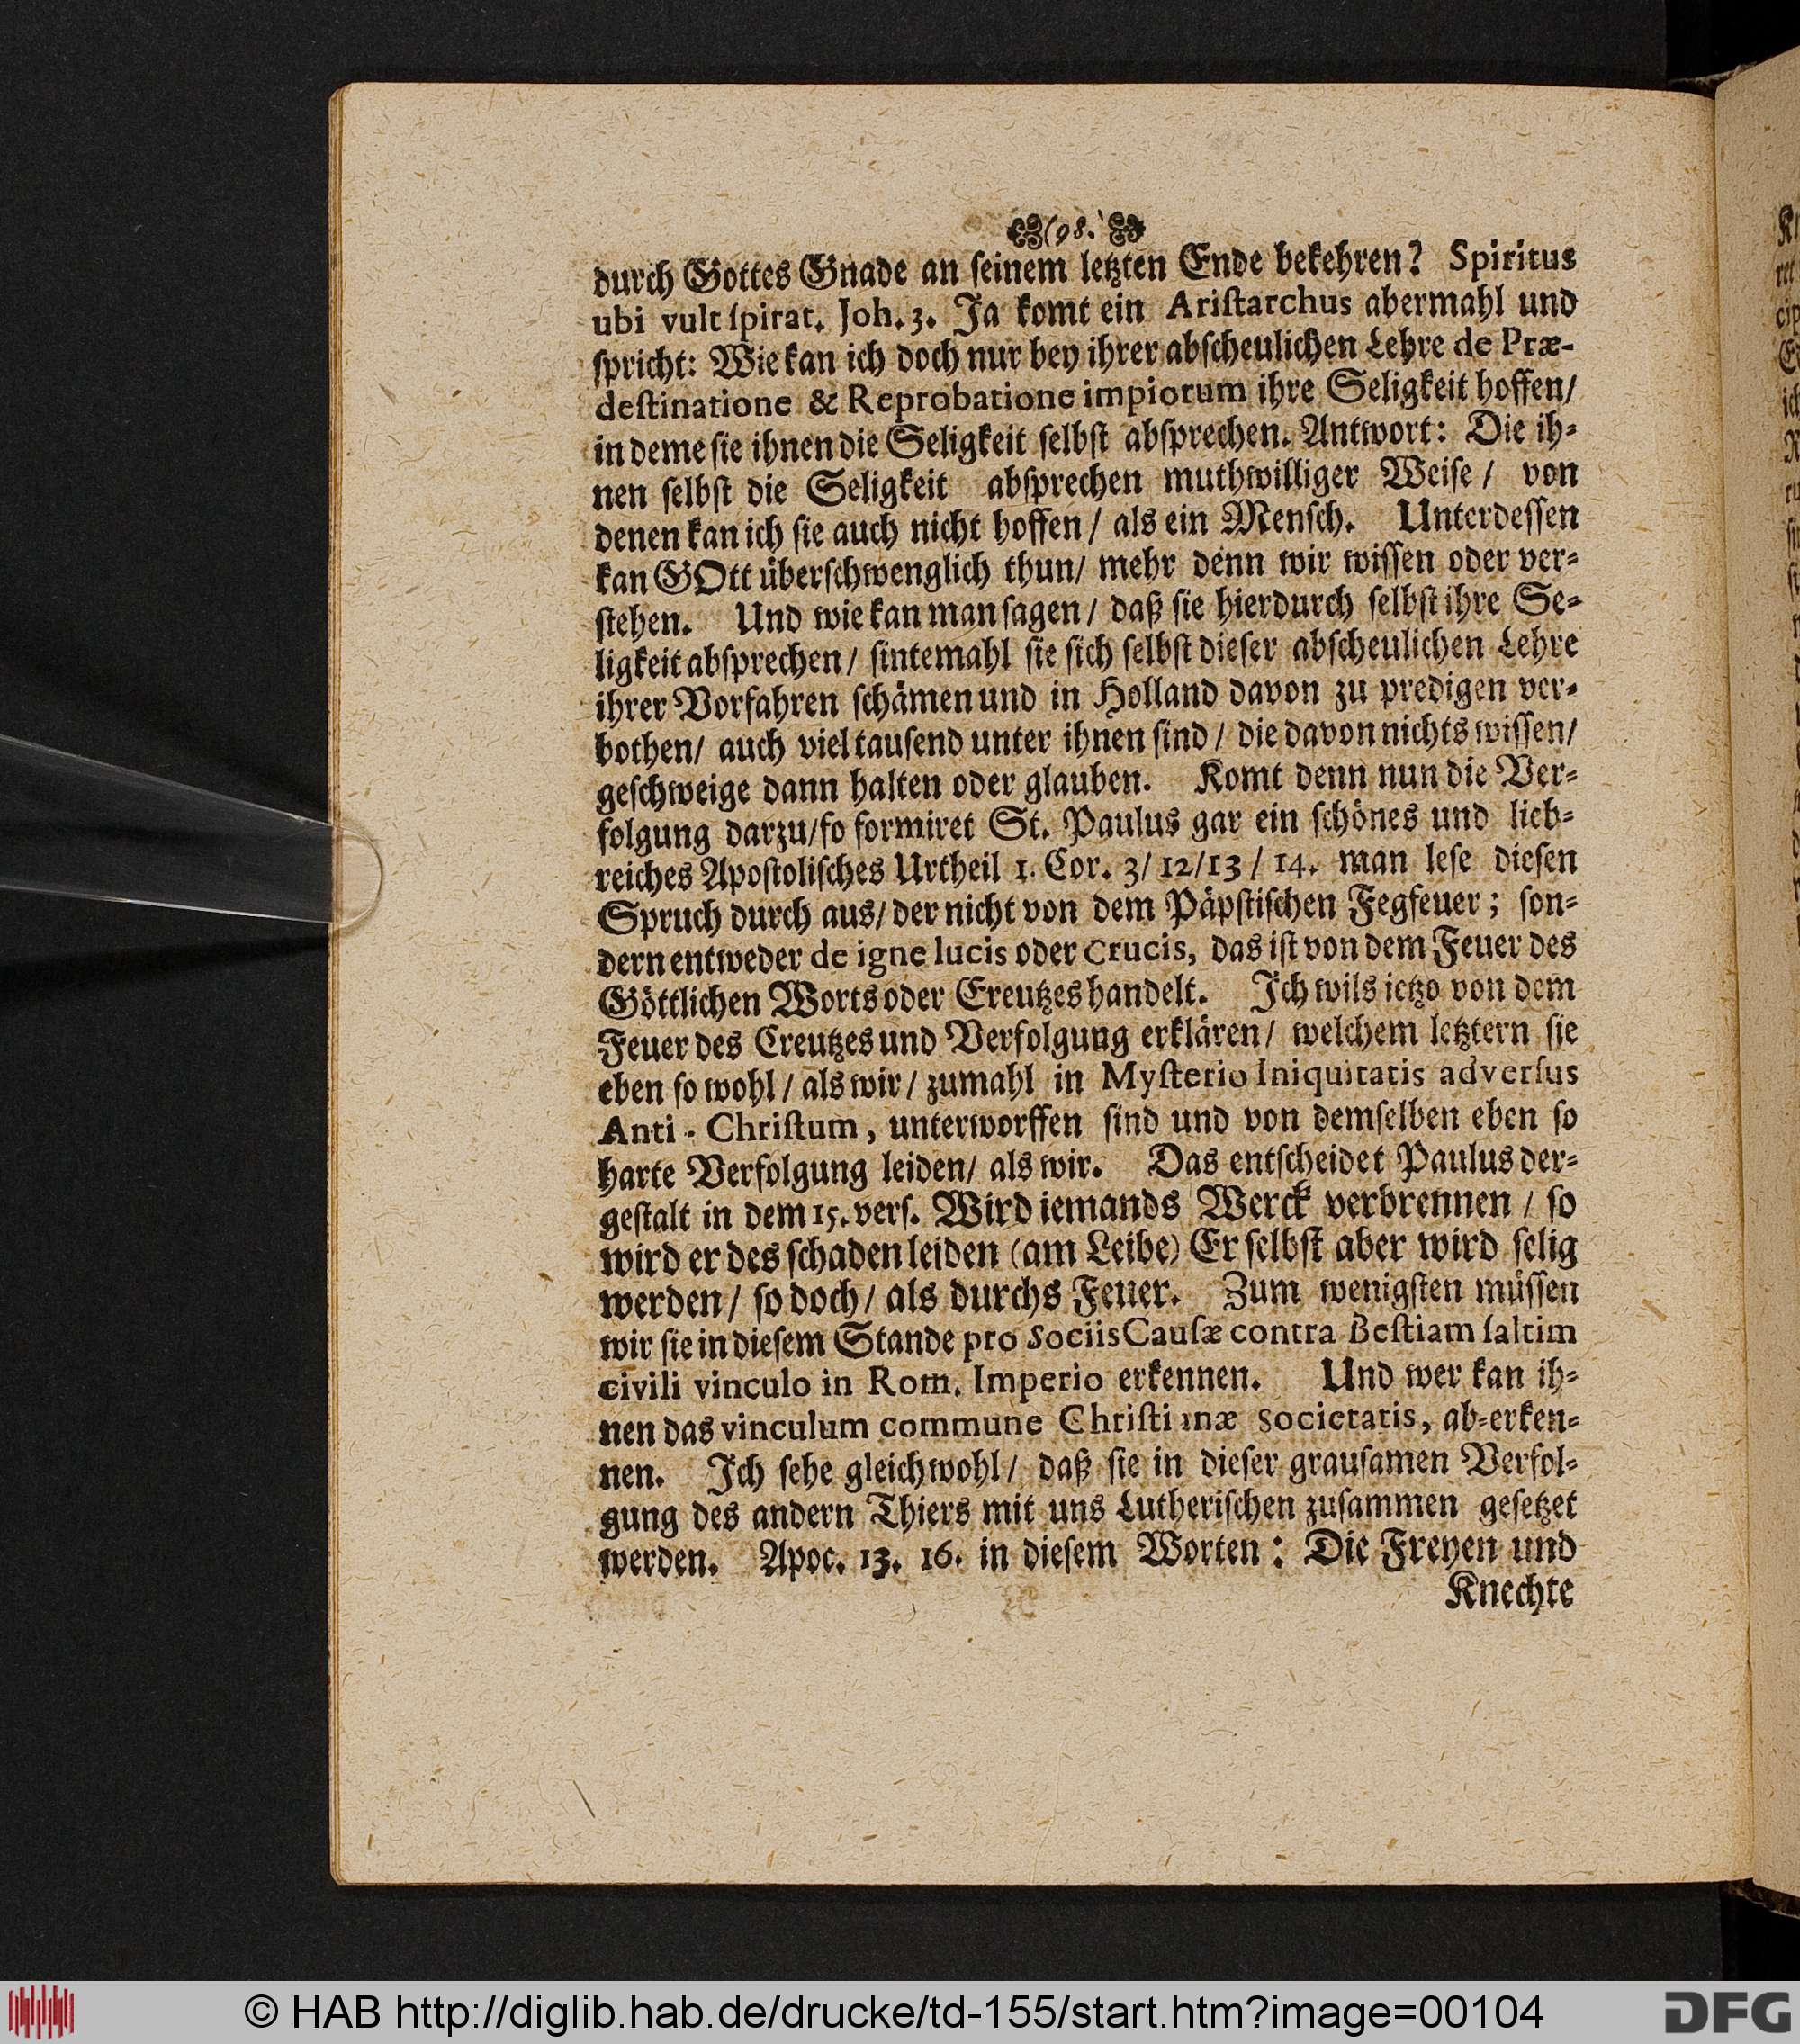 (98.
durch Gottes Gnade an ſeinem letzten Ende bekehren? Spiritus
ubi vult ſpirat. Joh. 3. Ja komt ein Ariſtarchus abermahl und
ſpricht: Wie kan ich doch nur bey ihrer abſcheulichen Lehre de Præ-
deſtinatione & Reprobatione impiorum ihre Seligkeit hoffen/
in deme ſie ihnen die Seligkeit ſelbſt abſprechen. Antwort: Die ih-
nen ſelbſt die Seligkeit abſprechen muthwilliger Weiſe / von
denen kan ich ſie auch nicht hoffen / als ein Menſch. Unterdeſſen
kan GOtt überſchwenglich thun/ mehr denn wir wiſſen oder ver-
ſtehen. Und wie kan man ſagen / daß ſie hierdurch ſelbſt ihre Se-
ligkeit abſprechen / ſintemahl ſie ſich ſelbſt dieſer abſcheulichen Lehre
ihrer Vorfahren ſchämen und in Holland davon zu predigen ver-
bothen/ auch viel tauſend unter ihnen ſind / die davon nichts wiſſen/
geſchweige dann halten oder glauben. Komt denn nun die Ver-
folgung darzu/ ſo formiret St. Paulus gar ein ſchönes und lieb-
reiches Apoſtoliſches Urtheil 1. Cor. 3/ 12/13 / 14. man leſe dieſen
Spruch durch aus/ der nicht von dem Päpſtiſchen Fegfeuer; ſon-
dern entweder de igne lucis oder Crucis, das iſt von dem Feuer des
Göttlichen Worts oder Creutzes handelt. Ich wils ietzo von dem
Feuer des Creutzes und Verfolgung erklären / welchem letztern ſie
eben ſo wohl / als wir / zumahl in Myſterio Iniquitatis adverſus
Anti-Chriſtum, unterworffen ſind und von demſelben eben ſo
harte Verfolgung leiden/ als wir. Das entſcheidet Paulus der-
geſtalt in dem 15. verſ. Wird iemands Werck verbrennen / ſo
wird er des ſchaden leiden (am Leibe) Er ſelbſt aber wird ſelig
werden / ſo doch / als durchs Feuer. Zum wenigſten müſſen
wir ſie in dieſem Stande pro Sociis Cauſæ contra Beſtiam ſaltim
civili vinculo in Rom. Imperio erkennen. Und wer kan ih-
nen das vinculum commune Chriſtianæ Societatis, ab-erken-
nen. Ich ſehe gleichwohl / daß ſie in dieſer grauſamen Verfol-
gung des andern Thiers mit uns Lutheriſchen zuſammen geſetzet
werden. Apoc. 13. 16. in dieſem Worten: Die Freyen und
Knechte
© HAB http://diglib.hab.de/drucke/td-155/start.htm?image=00104
DFG